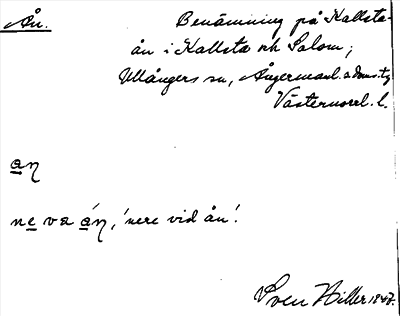 Ån. Benämning på Kallsta-
ån i Kallsta och Salom;
Ullångers sn, Ångermanl. a domstg
Västernorrl. l.
an
ne va án, 'nere vid ån'.
Sven Hiller 1947.